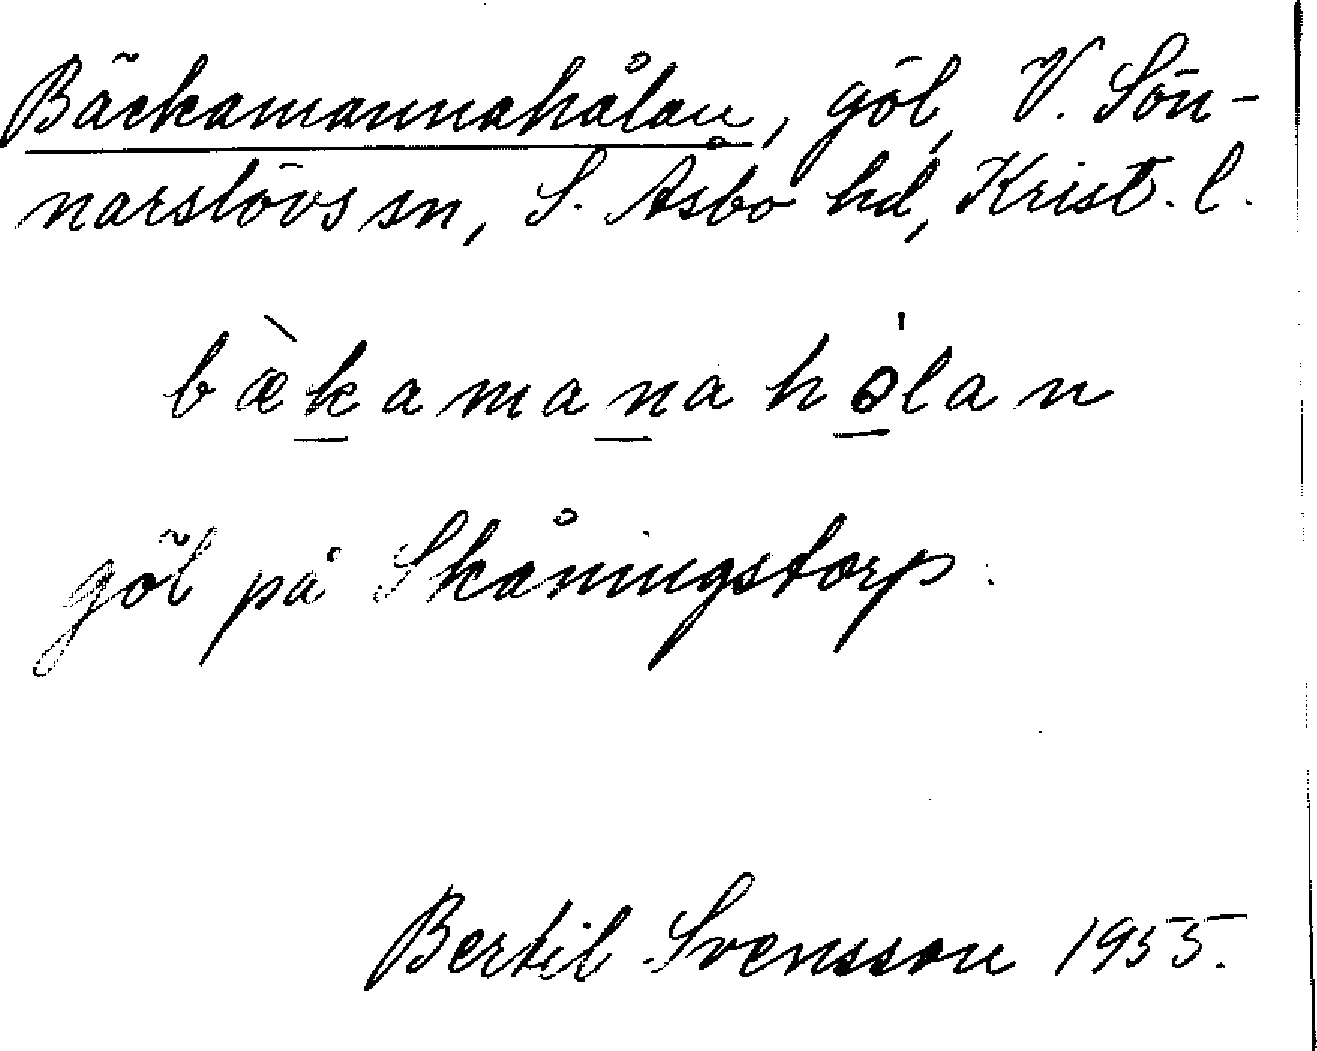 Bäckamannahålan, göl, V. Sön-
narslövs sn, S. Åsbo hd, Krist. l.
bæ̀kamanahɔ̍lan
göl på Skåningstorp.
Bertil Svensson 1955.